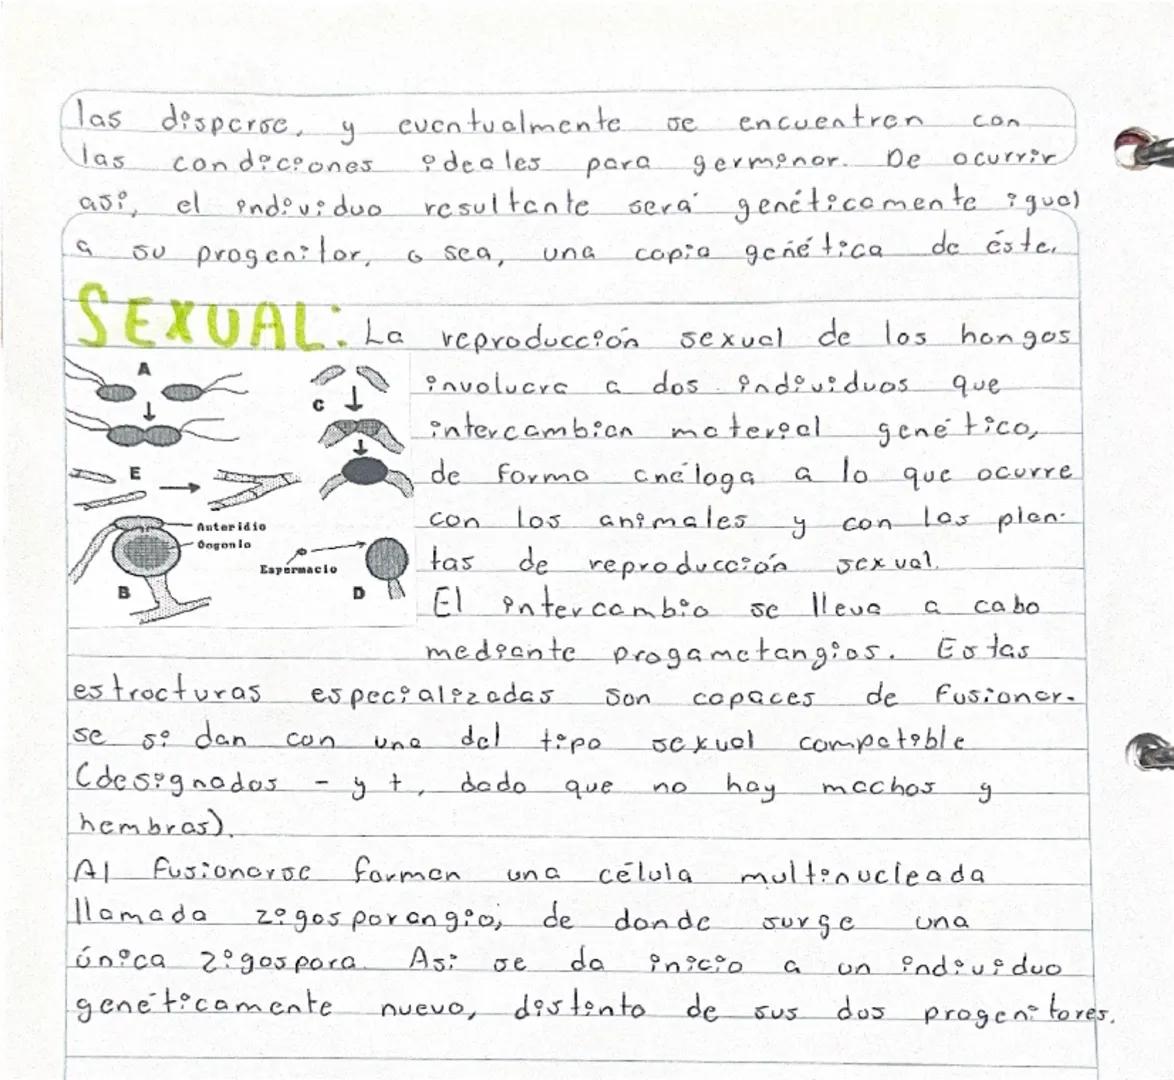 las disperse, y eventualmente se encuentren con
las condiciones ideales para germinar. De ocurrir
así, el individuo resultante será genéticamente igual
a su progenitor, o sea, una copia genética de éste.
SEXUAL: La reproducción sexual de los hongos
involucra a dos individuos que
intercambian material genético,
de forma análoga a lo que ocurre
con los animales y con las plan-
tas de reproducción sexual.
El intercambio se lleva a cabo
mediante progametangios. Estas
estructuras especializadas son capaces de fusionar-
se si dan con una del tipo sexual compatible
(designados - y +, dado que no hay machos y
hembras).
Al fusionarse forman una célula multinucleada
llamada zigosporangio, de donde surge una
única zigospora. Así se da inicio a un individuo
genéticamente nuevo, distinto de sus dos progenitores.
A
C
E
Anteridio
Oogonio
Espermacio
B
D